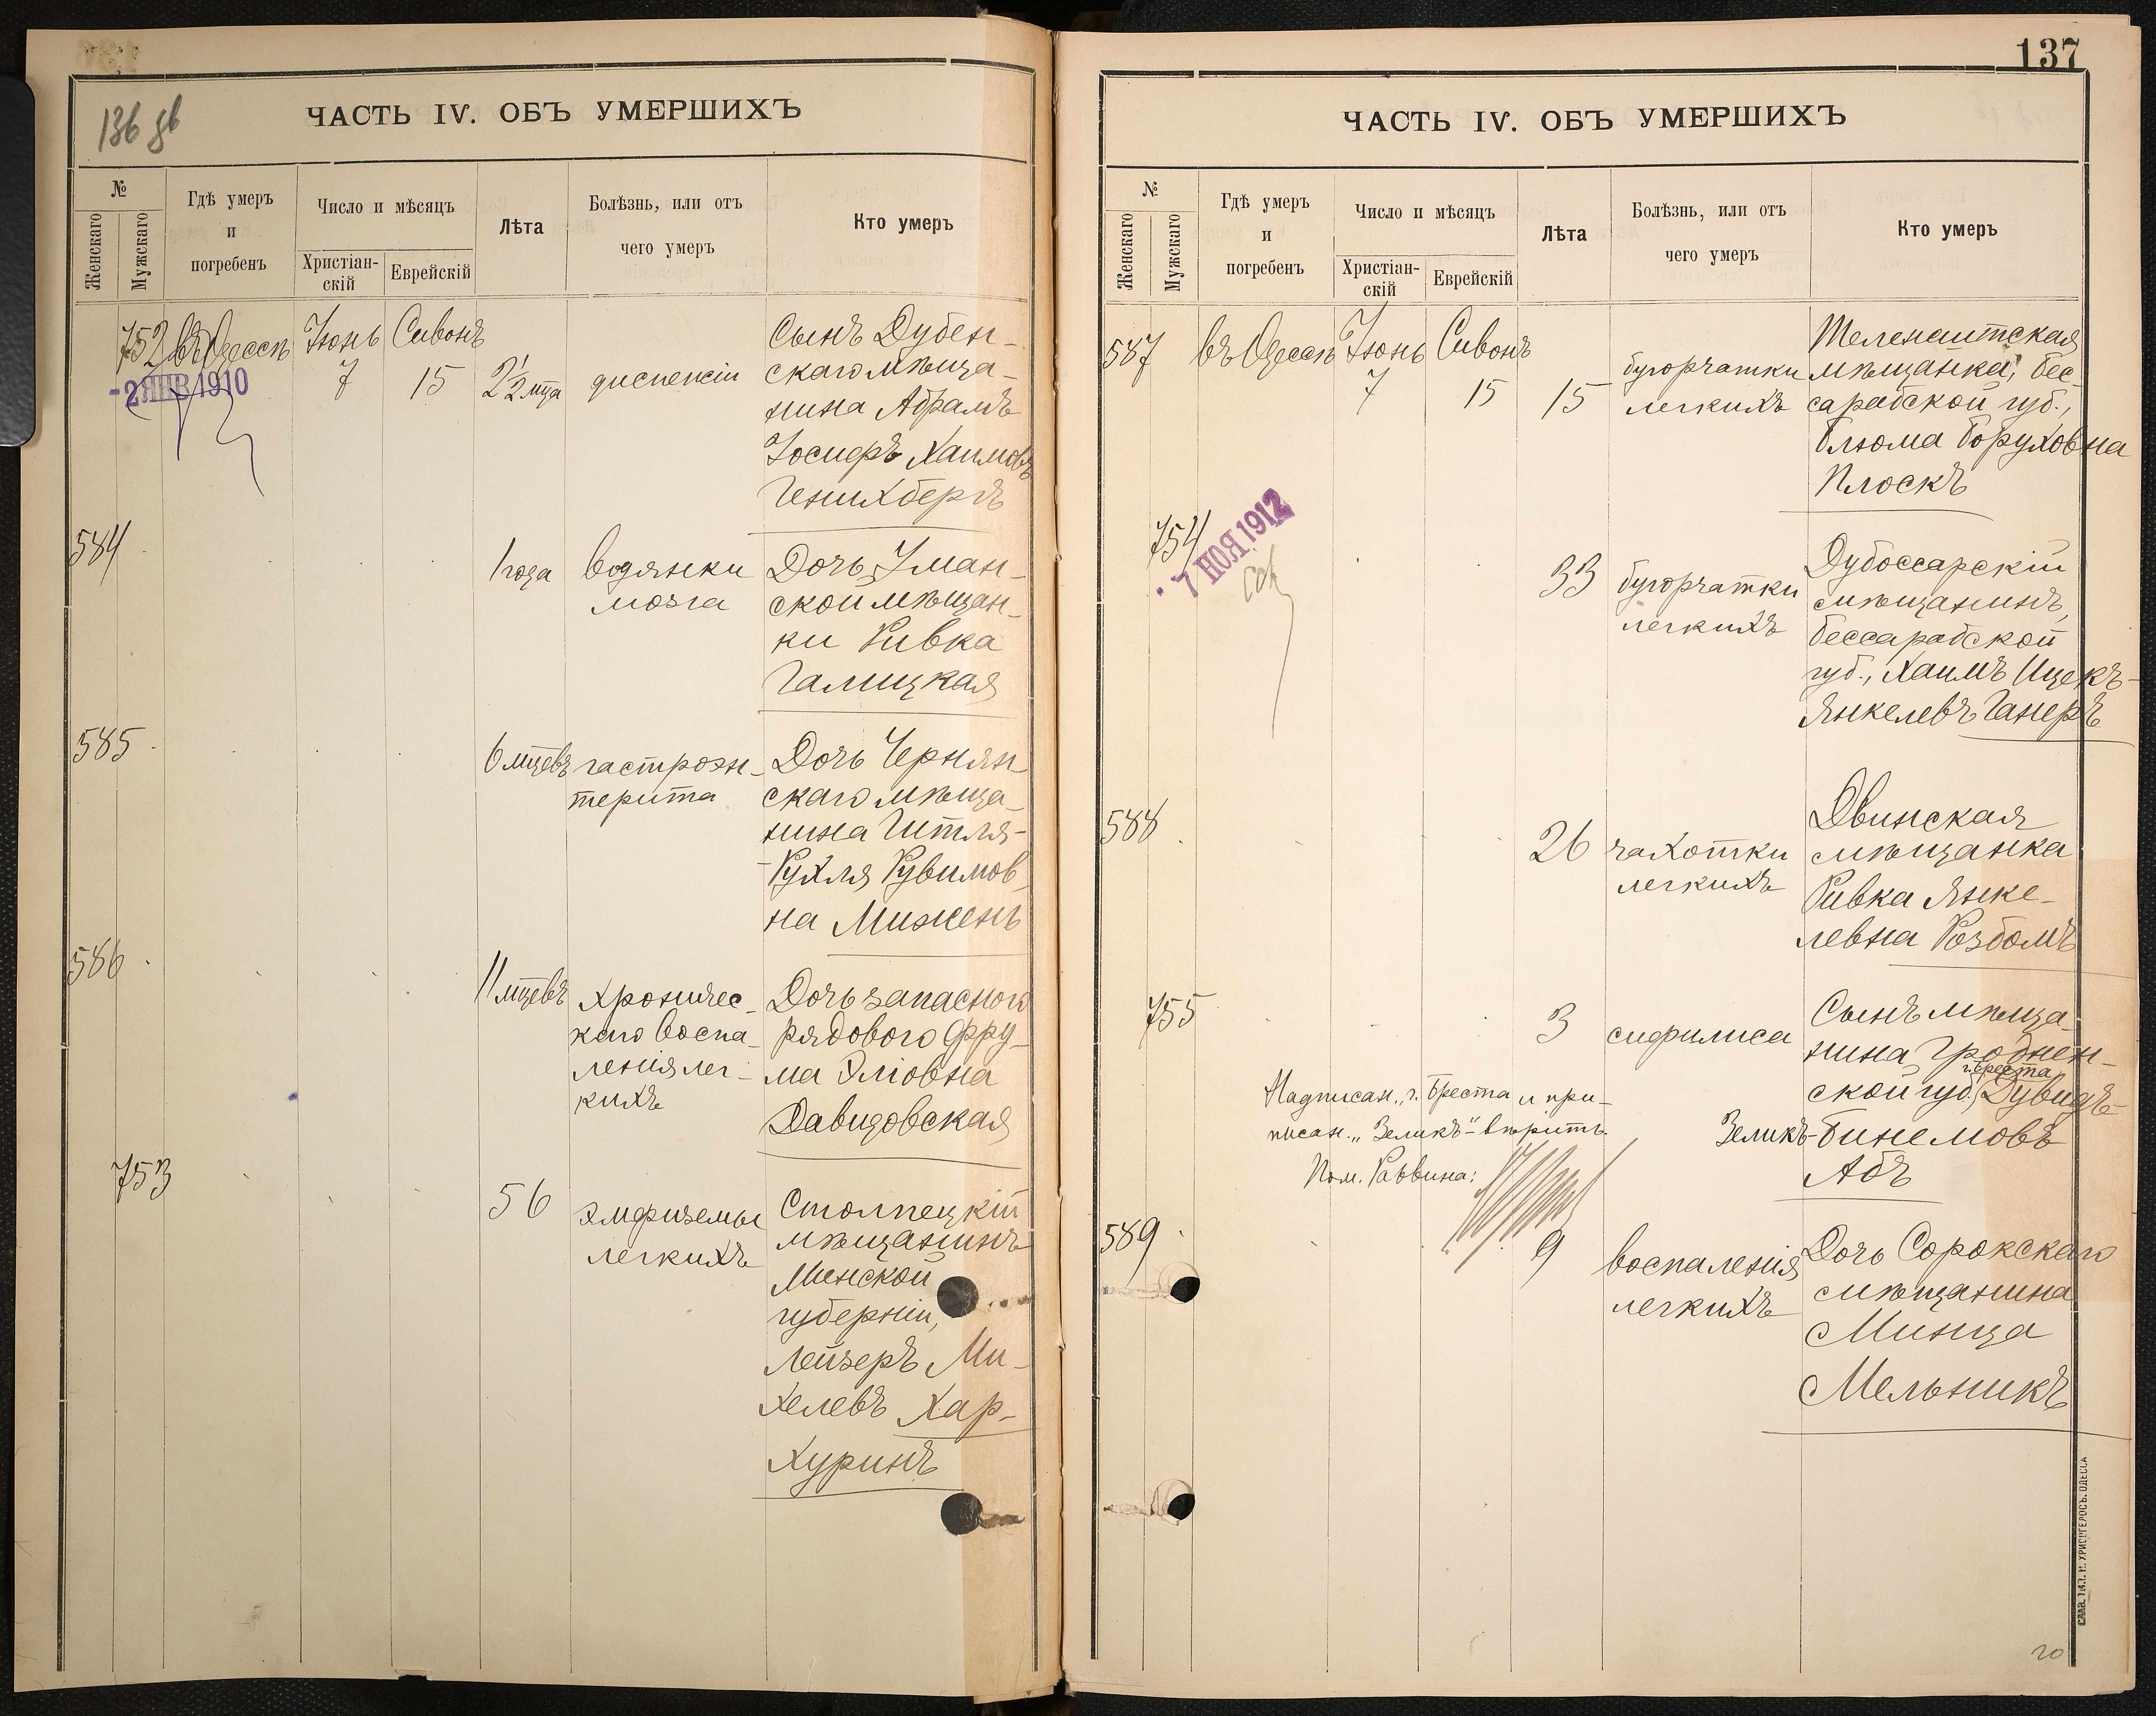 136 об
ЧАСТЬ IV. ОБЪ УМЕРШИХЪ
№
Женскаго
Мужскаго
Гдѣ умеръ
и
погребенъ
Число и мѣсяцъ
Христіан-
скій
Еврейскій
Лѣта
Болѣзнь, или отъ
чего умеръ
Кто умеръ
752 въ Одессѣ Іюнь Сивонъ
7 15 2½ мца диспепсіи
- 2 ЯНВ 1910
Сынъ Дубен-
скаго мѣща-
нина Абрамъ
Іосифъ Хаимовъ
Генихбергъ
584
1 года водянки
мозга
Дочь Уман-
ской мѣщан-
ки Ривка
Галицкая
585
6 мцевъ гастроэн-
терита
Дочь Чернян-
скаго мѣща-
нина Гитля-
-Рухля Рувимов-
на Мижень
586
11 мцевъ хроничес-
каго воспа-
ленія лег-
кихъ
Дочь запаснаго
рядового Фру-
ма Эліовна
Давидовская
753
56 эмфиземы
легкихъ
Столпецкій
мѣщанинъ
Минской
губерніи,
Лейзеръ Ми-
хелевъ Хар-
хуринъ
137
ЧАСТЬ IV. ОБЪ УМЕРШИХЪ
№
Женскаго
Мужскаго
Гдѣ умеръ
и
погребенъ
Число и мѣсяцъ
Христіан-
скій
Еврейскій
Лѣта
Болѣзнь, или отъ
чего умеръ
Кто умеръ
587 въ Одессѣ Іюнь Сивонъ
7 15 15 бугорчатки
легкихъ
Теленештская
мѣщанка, бес-
сарабской губ.,
Блюма Боруховна
Плоскъ
754
7 НОЯ 1912
33 бугорчатки
легкихъ
Дубоссарскій
мѣщанинъ,
бессарабской
губ., Хаимъ Ицекъ-
Янкелевъ Ганеръ
588
26 чахотки
легкихъ
Двинская
мѣщанка
Ривка Янке-
левна Розбомъ
755
3 сифилиса
Сынъ мѣща-
нина Гроднен-
г. Бреста
ской губ., Дувидъ-
Зеликъ-Бинемовъ
Абъ
Надписан. „г. Бреста и при-
писан. „Зеликъ"- вѣрить.
Пом. Раввина:
589
9 воспаленія
легкихъ
Дочь Сорокскаго
мѣщанина
Минца
Мельникъ
20